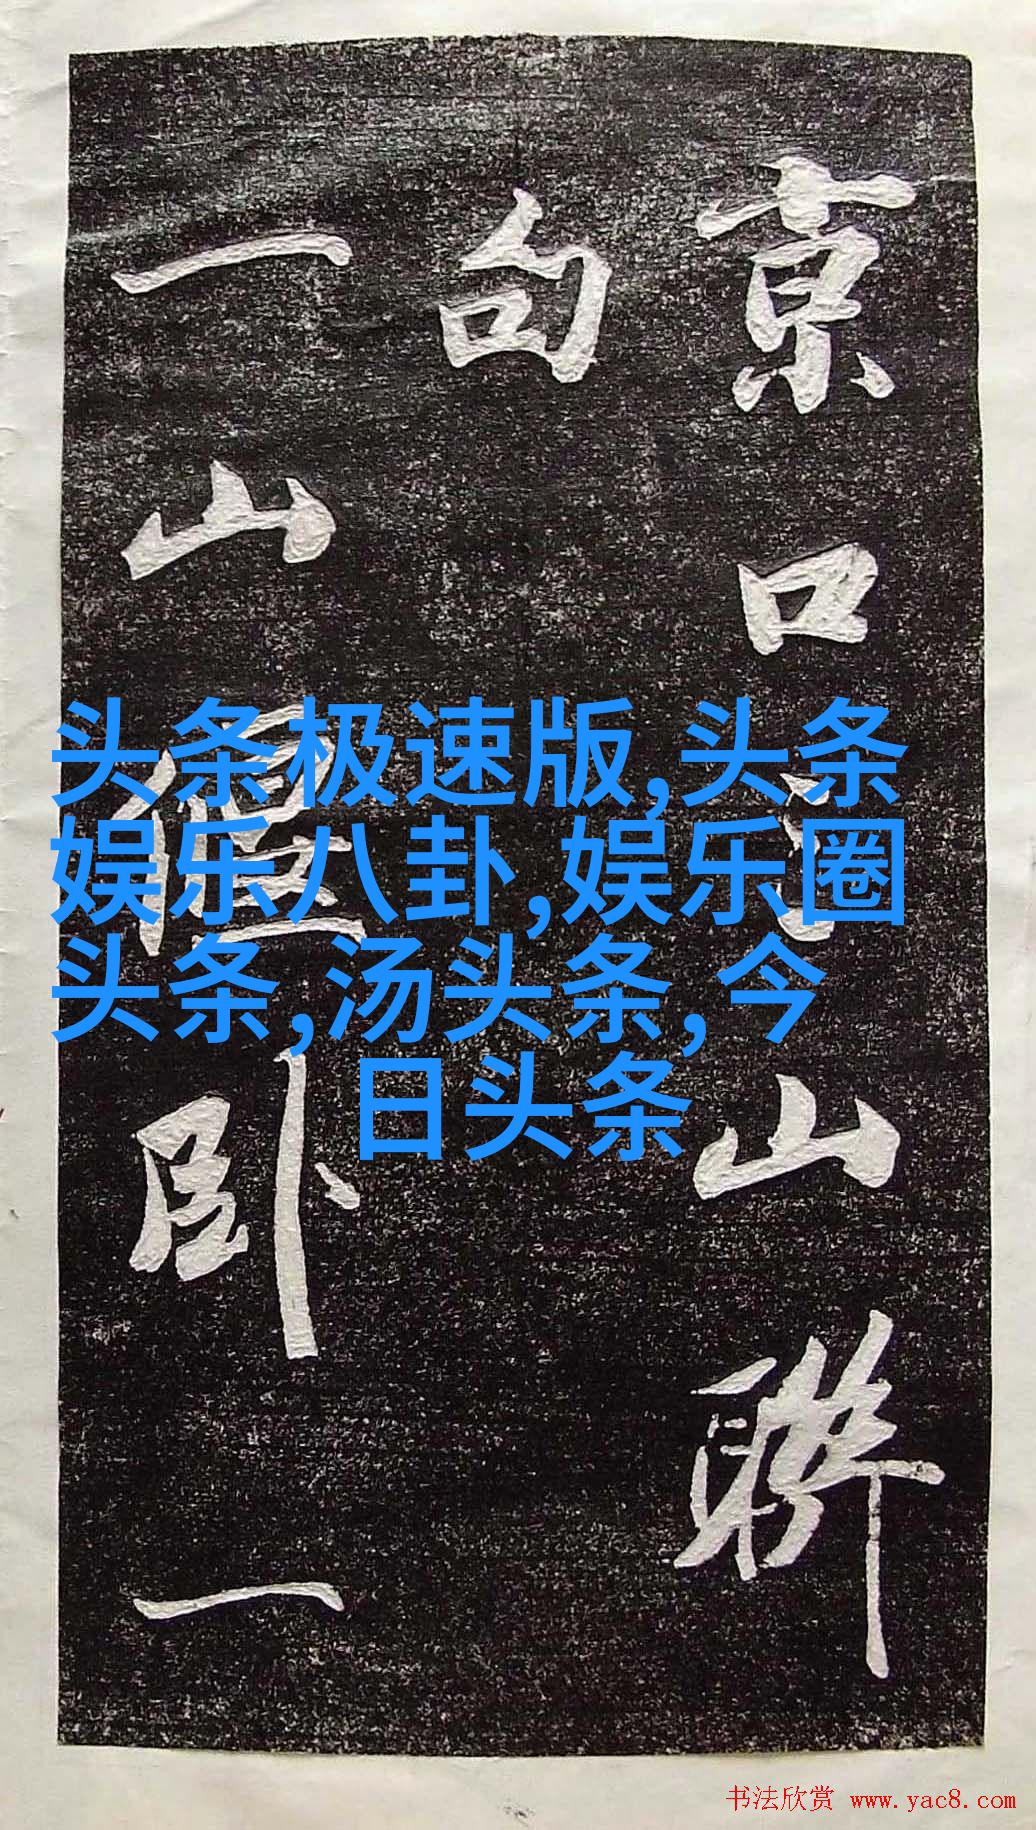 京口山聯
句
一山偃卧一
头条极速版,头条
娱乐八卦,娱乐圈
头条,汤头条,今
日头条
书法欣赏 www.yac8.com